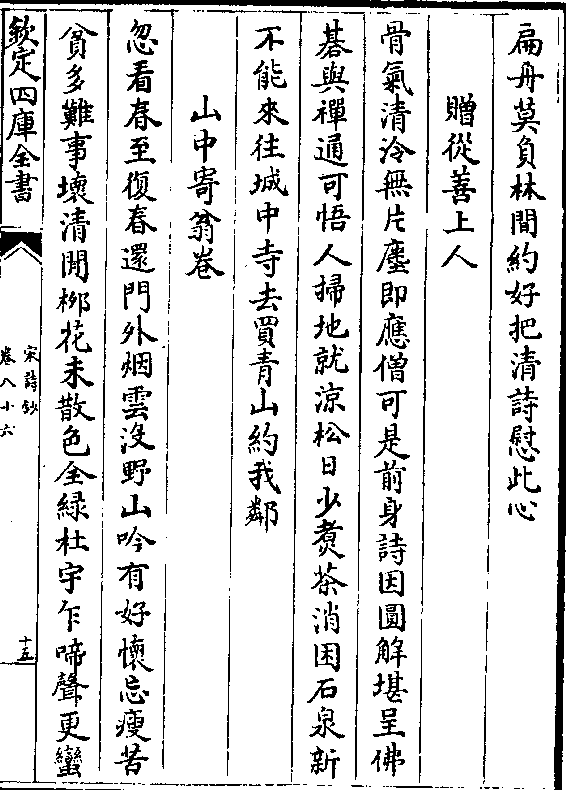 扁舟莫負林間約好把清詩慰此心
贈從善上人
骨氣清泠無片塵即應僧可是前身詩因圓解堪呈佛
棊與禪通可悟人掃地就涼松日少煑茶消困石泉新
不能來往城中寺去買青山約我鄰
山中寄翁卷
忽看春至復春還門外烟雲沒野山吟有好懷忘瘦苦
貧多難事壞清閒栁花未散色全緑杜宇乍啼聲更蠻
欽定四庫全書
宋詩鈔
卷八十六
十五